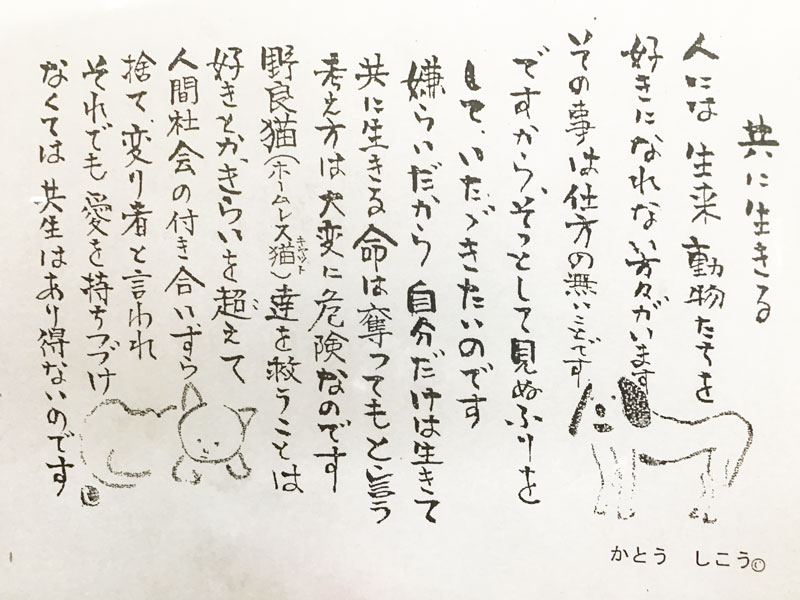 共に生きる
人には 生来 動物たちを
好きになれない方々がいます
その事は仕方の無いことです
ですから、そっとして見ぬふりを
して、いたゞきたいのです
嫌らいだから 自分だけは生きて
共に生きる命は奪ってもと言う
考え方は大変に危険なのです
野良猫(ホームレス猫キャット)達を救うことは
好きとか、きらいを超こえて
人間社会の付き合いすら
捨て、変り者と言われ
それでも愛を持ちつづけ
なくては 共生はあり得ないのです
かとう しこう©